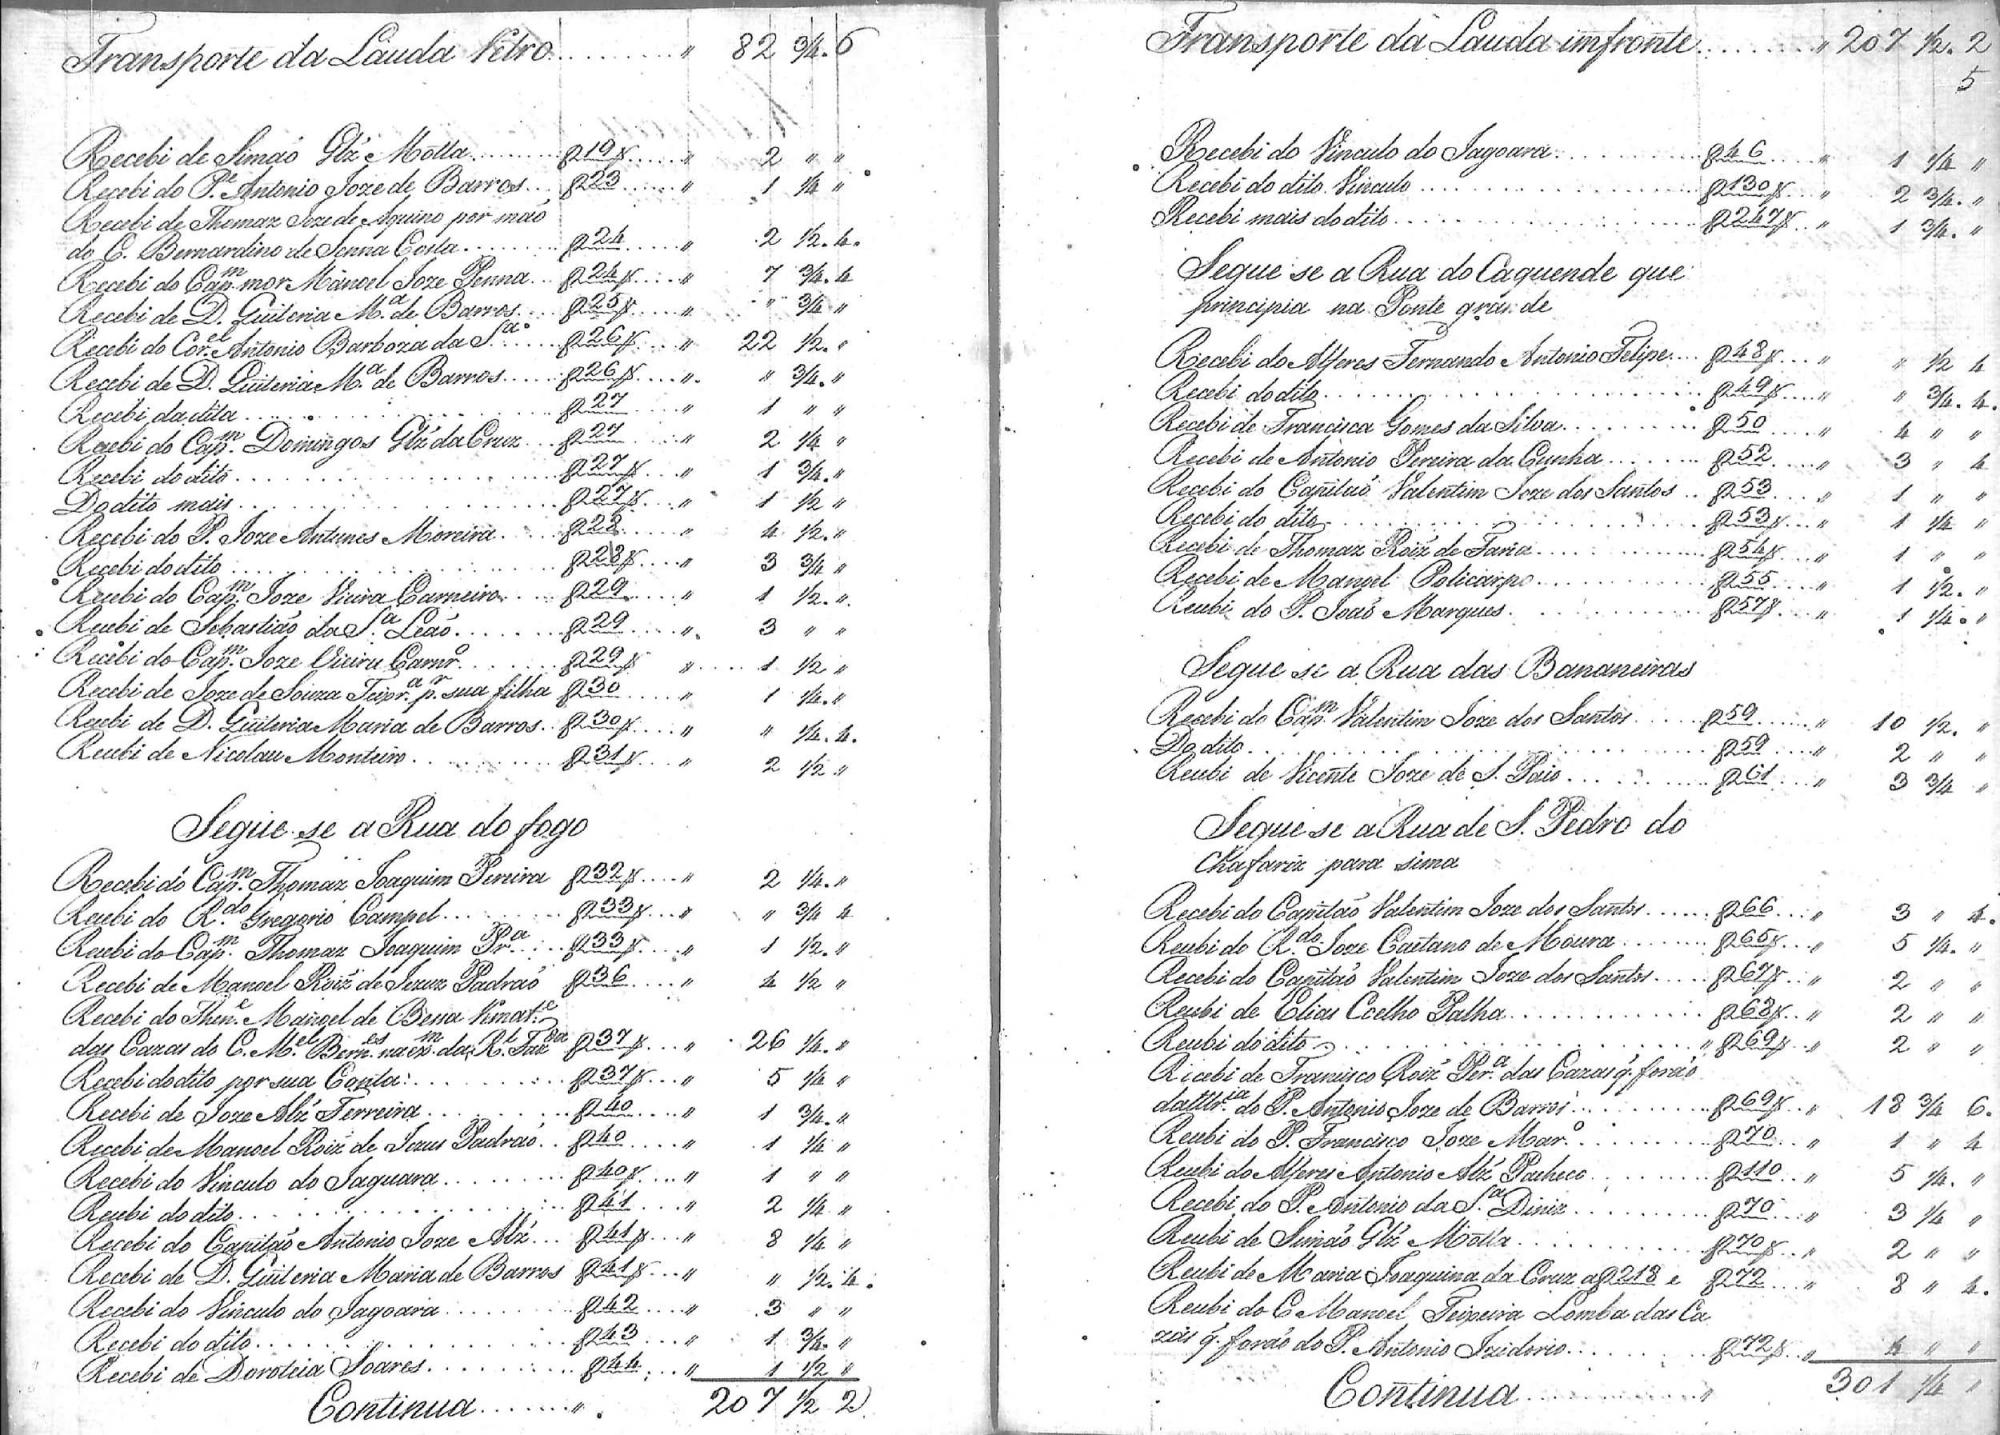 Transporte da Lauda Retro " 82 3/4. 6
Recebi de Simaõ Glz̃ Motta f219v " 2 " "
Recebi do Pe. Antonio Joze de Barros f223 " 1 1/4 "
Recebi de Thomaz Joze de Aquino por maõ
do C. Bernardino de Senna Costa f224 " 2 1/2. 4.
Recebi do Capm. mor Manoel Joze Penna f224v " 7 3/4. 4
Recebi de D. Guiteria Ma. de Barros f225v " " 3/4 "
Recebi do Corel. Antonio Barboza da Sa. f226v " 22 1/2. "
Recebi de D. Guiteria Ma. de Barros f226v " " 3/4. "
Recebi da dita f227 " 1 " "
Recebi do Capm. Domingos Glz̃ da Cruz f227 " 2 1/4 "
Recebi do dito f227v " 1 3/4. "
Do dito mais f227v " 1 1/2 "
Recebi do P. Joze Antunes Moreira f228 " 4 1/2. "
Recebi do dito f228v " 3 3/4 "
Recebi do Capm. Joze Vieira Carneiro f229 " 1 1/2. "
Recebi de Sebastiaõ da Sa. Leaõ f229 " 3 " "
Recebi do Capm. Joze Vieira Carnro. f229v " 1 1/2 "
Recebi de Joze de Souza Teixra. pr. sua filha f230 " 1 1/4. "
Recebi de D. Guiteria Maria de Barros f230v " " 1/4. 4.
Recebi de Nicolau Monteiro f231v " 2 1/2 "
Segue se a Rua do fogo
Recebi do Capm. Thomaz Joaquim Pereira f232v " 2 1/4. "
Recebi do Rdo. Gregorio Campel f233v " " 3/4 4
Recebi do Capm. Thomaz Joaquim Pra. f233v " 1 1/2. "
Recebi de Manoel Roiz̃ de Jezuz Padraõ f236 " 4 1/2 "
Recebi do Thene. Manoel de Bessa
das Cazas do C. Mel. Bernes. na exm. da Rl. Faxda f237v " 26 1/4. "
Recebi do dito por sua Conta: f237v " 5 1/4 "
Recebi de Joze Alz̃ Ferreira f240 " 1 3/4. "
Recebi de Manoel Roiz̃ de Jezus Padraõ f240 " 1 1/4 "
Recebi do Vinculo do Jaguara f240v " 1 " "
Recebi do dito f241 " 2 1/4 "
Recebi do Capitaõ Antonio Joze Alz̃ f241v " 8 1/4 "
Recebi de D. Guiteria Maria de Barros f241v " " 1/2. 4.
Recebi do Vinculo do Jagoara f242 " 3 " "
Recebi do dito f243 " 1 3/4. "
Recebi de Doroteia Soares f244 " 1 1/2 "
Continua " 207 1/2 2
Transporte da Lauda imfronte " 207 1/2. 2
5
Recebi do Vinculo do Jagoara f246 " 1 1/4 "
Recebi do dito Vinculo f2130v " 2 3/4. "
Recebi mais do dito f2247v " 1 3/4. "
Segue se a Rua do Caquende que
principia na Ponte grande
Recebi do Alferes Fernando Antonio Felipe f248v " " 1/2 4
Recebi do dito f249v " " 3/4. 4.
Recebi de Francisca Gomes da Silva f250 " 4 " "
Recebi de Antonio Pereira da Cunha f252 " 3 " 4
Recebi do Capitaõ Valentim Joze dos Santos f253 " 1 " "
Recebi do dito f253v " 1 1/4 "
Recebi de Thomaz Roiz̃ de Faria f254v " 1 " "
Recebi de Manoel Policarpo f255 " 1 1/2. "
Recebi do P. Joaõ Marques f257v " 1 1/4. "
Segue se a Rua das Bananeiras
Recebi do Capm. Valentim Joze dos Santos f259 " 10 1/2. "
Do dito f259 " 2 " "
Recebi de Vicente Joze de S. Paio f261 " 3 3/4 "
Segue se a Rua de S. Pedro do
Chafariz para sima
Recebi do Capitaõ Valentim Joze dos Santos f266 " 3 " 4.
Recebi do Rdo. Joze Caetano de Moura f265v " 5 1/4. "
Recebi do Capitaõ Valentim Joze dos Santos f267v " 2 " "
Recebi de Elias Coelho Palha f268v " 2 " "
Recebi do dito " f269v " 2 " "
Recebi de Francisco Roiz̃ Pera. das Cazas q. foraõ
do P. Antonio Joze de Barros f269v " 18 3/4 6.
Recebi do P. Francisco Joze Maro. f270 " 1 " 4
Recebi do Alferes Antonio Alz̃ Pacheco f2110 " 5 1/4. "
Recebi do P. Antonio da Sa. Diniz f270 " 3 1/4 "
Recebi de Simaõ Glz̃ Motta f270v " 2 " "
Recebi de Maria Joaquina da Cruz af2218 e f272 " 8 " 4.
Recebi do C Manoel Teixeira Lomba das Ca
zas q. foraõ do P. Antonio Izidorio f272v " 4 " "
Continua " 301 1/4 "